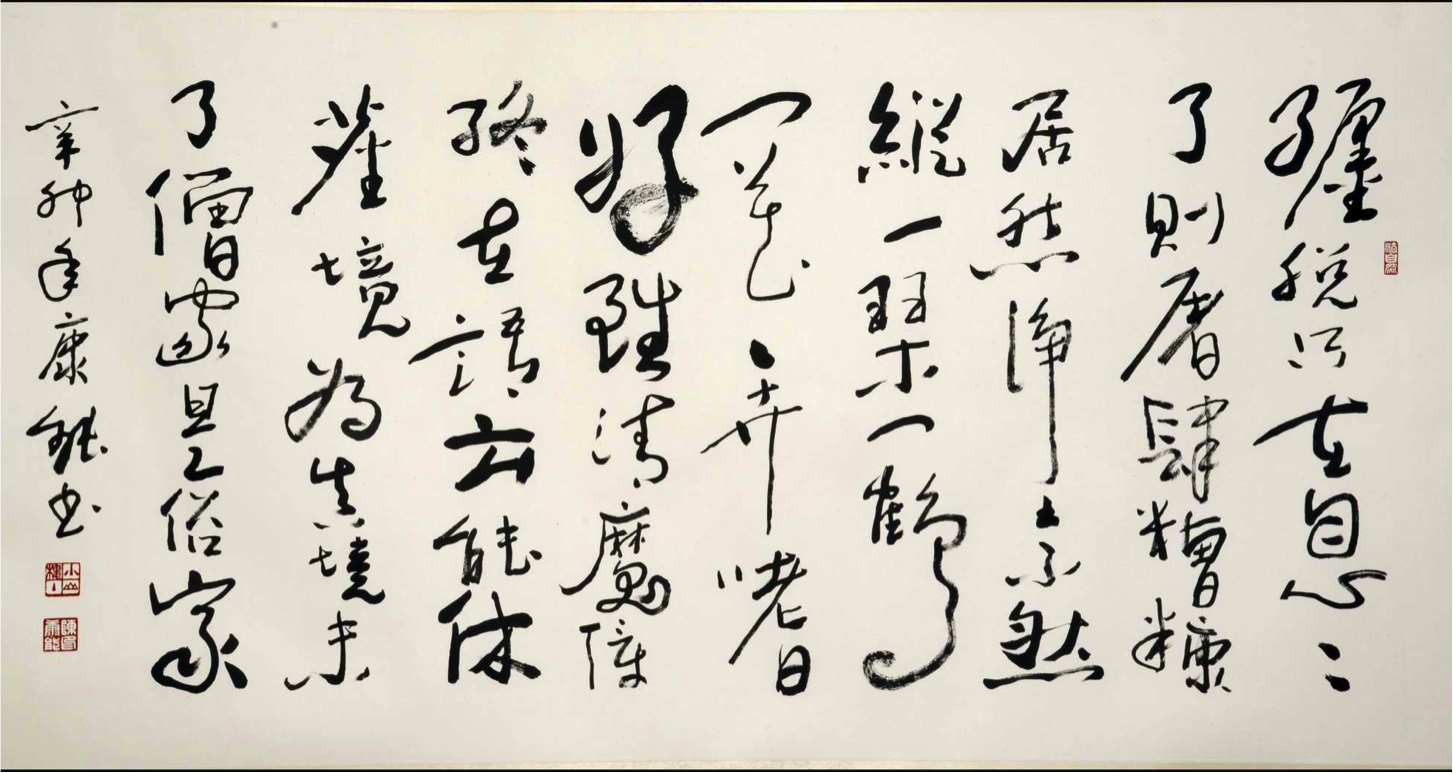 纏脱只在自心〻
了則屠肆糟糠
居然淨土不然
縱一琴一鶴
一花一卉嗜
好雖清魔障
終在語云能休
塵境為真境未
了僧家是俗家
辛卯年康 书